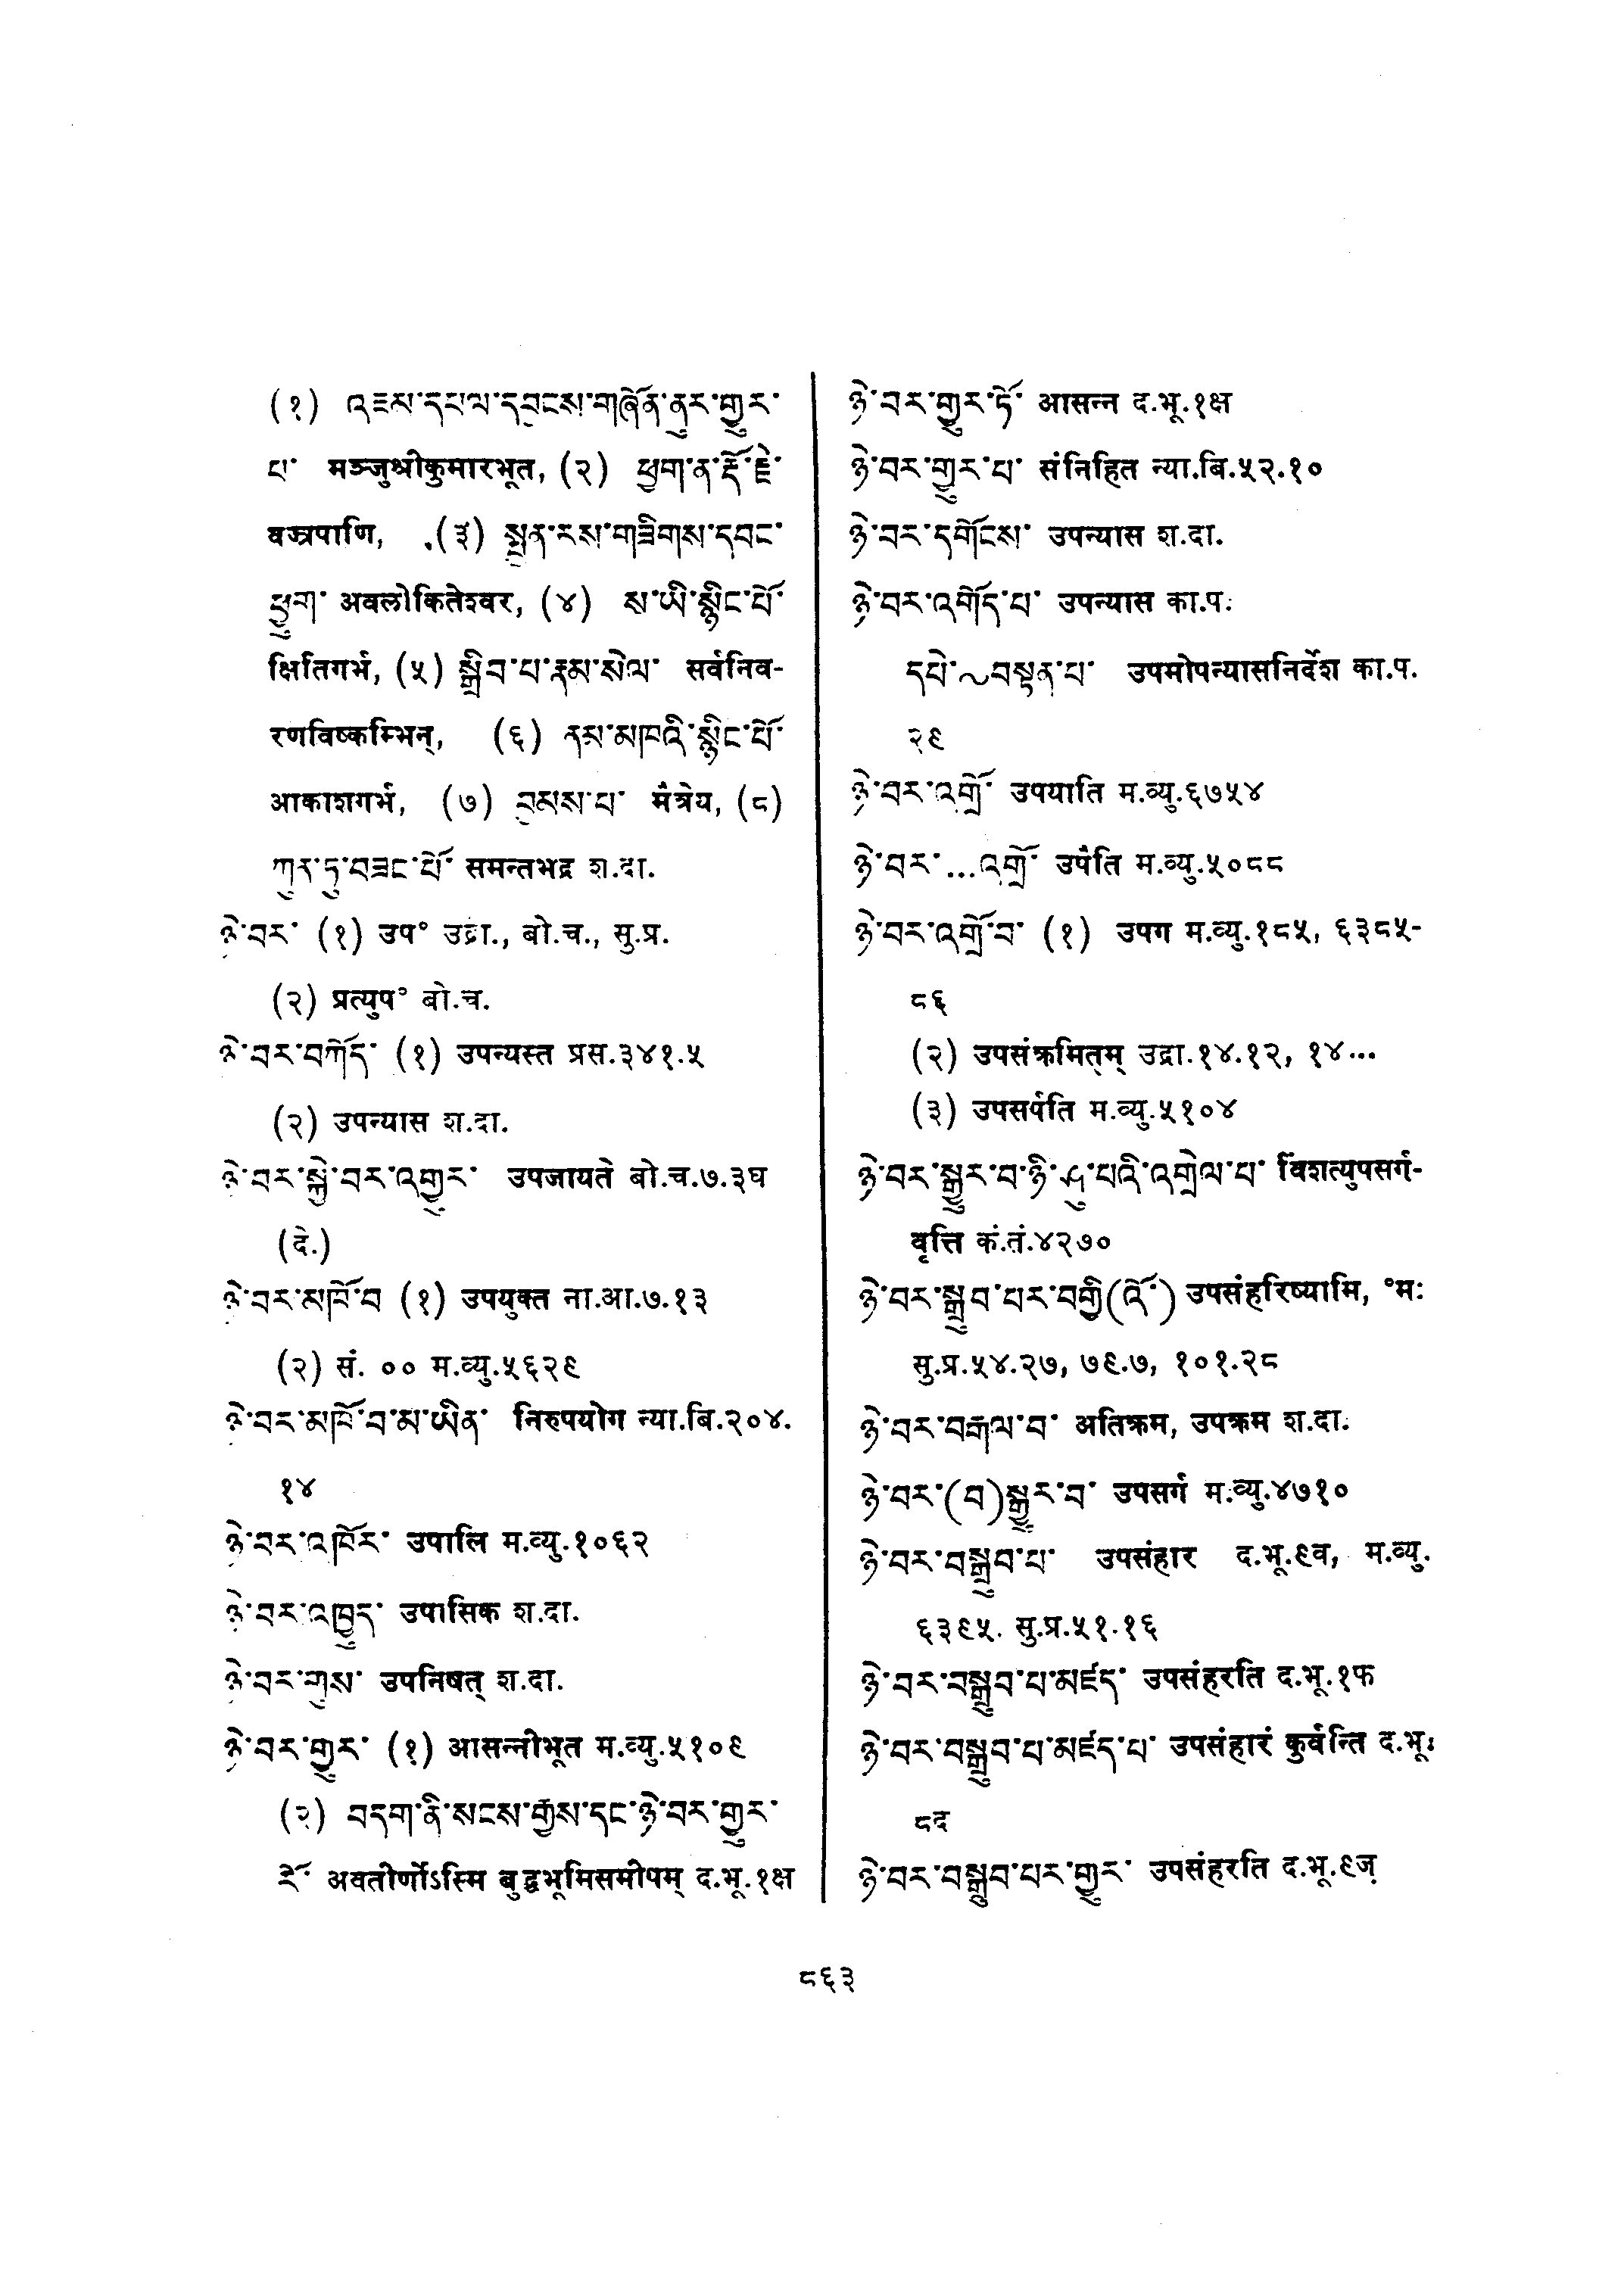 (१) འཇམ་དཔལ་དབྱངས་གཞོན་ནུར་གྱུར་
པ་ मञ्जुश्रीकुमारभूत, (२) ཕྱག་ན་རྡོ་རྗེ་
वज्रपाणि, (३) སྤྱན་རས་གཟིགས་དབང་
ཕྱུག་ अवलोकितेश्वर, (४) ས་ཡི་སྙིང་པོ་
क्षितिगर्भ, (५) སྒྲིབ་པ་རྣམ་སེལ་ सर्वनिव-
रणविष्कम्भिन्, (६) ནམ་མཁའི་སྙིང་པོ་
आकाशगर्भ, (७) བྱམས་པ་ मैत्रेय, (८)
ཀུན་ཏུ་བཟང་པོ་ समन्तभद्र श.दा.
ཉེ་བར་ (१) उप° उद्रा., बो.च., सु.प्र.
(२) प्रत्युप° बो.च.
ཉེ་བར་བཀོད་ (१) उपन्यस्त प्रस.३४१.५
(२) उपन्यास श.दा.
ཉེ་བར་སྐྱེ་བར་འགྱུར་ उपजायते बो.च.७.३घ
(दे.)
ཉེ་བར་མཁོ་བ (१) उपयुक्त ना.आ.७.१३
(२) सं. ०० म.व्यु.५६२९
ཉེ་བར་མཁོ་བ་མ་ཡིན་ निरुपयोग न्या.बि.२०४.
१४
ཉེ་བར་འཁོར་ उपालि म.व्यु.१०६२
ཉེ་བར་འཁྱུད་ उपासिक श.दा.
ཉེ་བར་གུས་ उपनिषत् श.दा.
ཉེ་བར་གྱུར་ (१) आसन्नीभूत म.व्यु.५१०९
(२) བདག་ནི་སངས་རྒྱས་དང་ཉེ་བར་གྱུར་
 རོ་ अवतीर्णोऽस्मि बुद्धभूमिसमीपम् द.भू.१क्ष
ཉེ་བར་གྱུར་ཏོ་ आसन्न द.भू.१क्ष
ཉེ་བར་གྱུར་པ་ संनिहित न्या.बि.५२.१०
ཉེ་བར་དགོངས་ उपन्यास श.दा.
ཉེ་བར་འགོད་པ་ उपन्यास का.प.
དཔེ་~བསྟན་པ་ उपमोपन्यासनिर्देश का.प.
२९
ཉེ་བར་འགྲོ་ उपयाति म.व्यु.६७५४
ཉེ་བར་...འགྲོ་ उपैति म.व्यु.५०८८
ཉེ་བར་འགྲོ་བ་ (१) उपग म.व्यु.१८५, ६३८५-
८६
(२) उपसंक्रमितुम् उद्रा.१४.१२, १४...
(३) उपसर्पति म.व्यु.५१०४
ཉེ་བར་སྒྱུར་བ་ཉི་ཤུ་པའི་འགྲེལ་པ་ विंशत्युपसर्ग-
वृत्ति कं.तं.४२७०
ཉེ་བར་སྒྲུབ་པར་བགྱི(འོ་) उपसंहरिष्यामि, °मः
सु.प्र.५४.२७, ७९.७, १०१.२८
ཉེ་བར་བརྒལ་བ་ अतिक्रम, उपक्रम श.दा.
ཉེ་བར་(བ)སྒྱུར་བ་ उपसर्ग म.व्यु.४७१०
ཉེ་བར་བསྒྲུབ་པ་ उपसंहार द.भू.९व, म.व्यु.
६३९५. सु.प्र.५१.१६
ཉེ་བར་བསྒྲུབ་པ་མཛད་ उपसंहरति द.भू.१फ
ཉེ་བར་བསྒྲུབ་པ་མཛད་པ་ उपसंहारं कुर्वन्ति द.भू.
८द
ཉེ་བར་བསྒྲུབ་པར་གྱུར་ उपसंहरति द.भू.९ज्
८६३